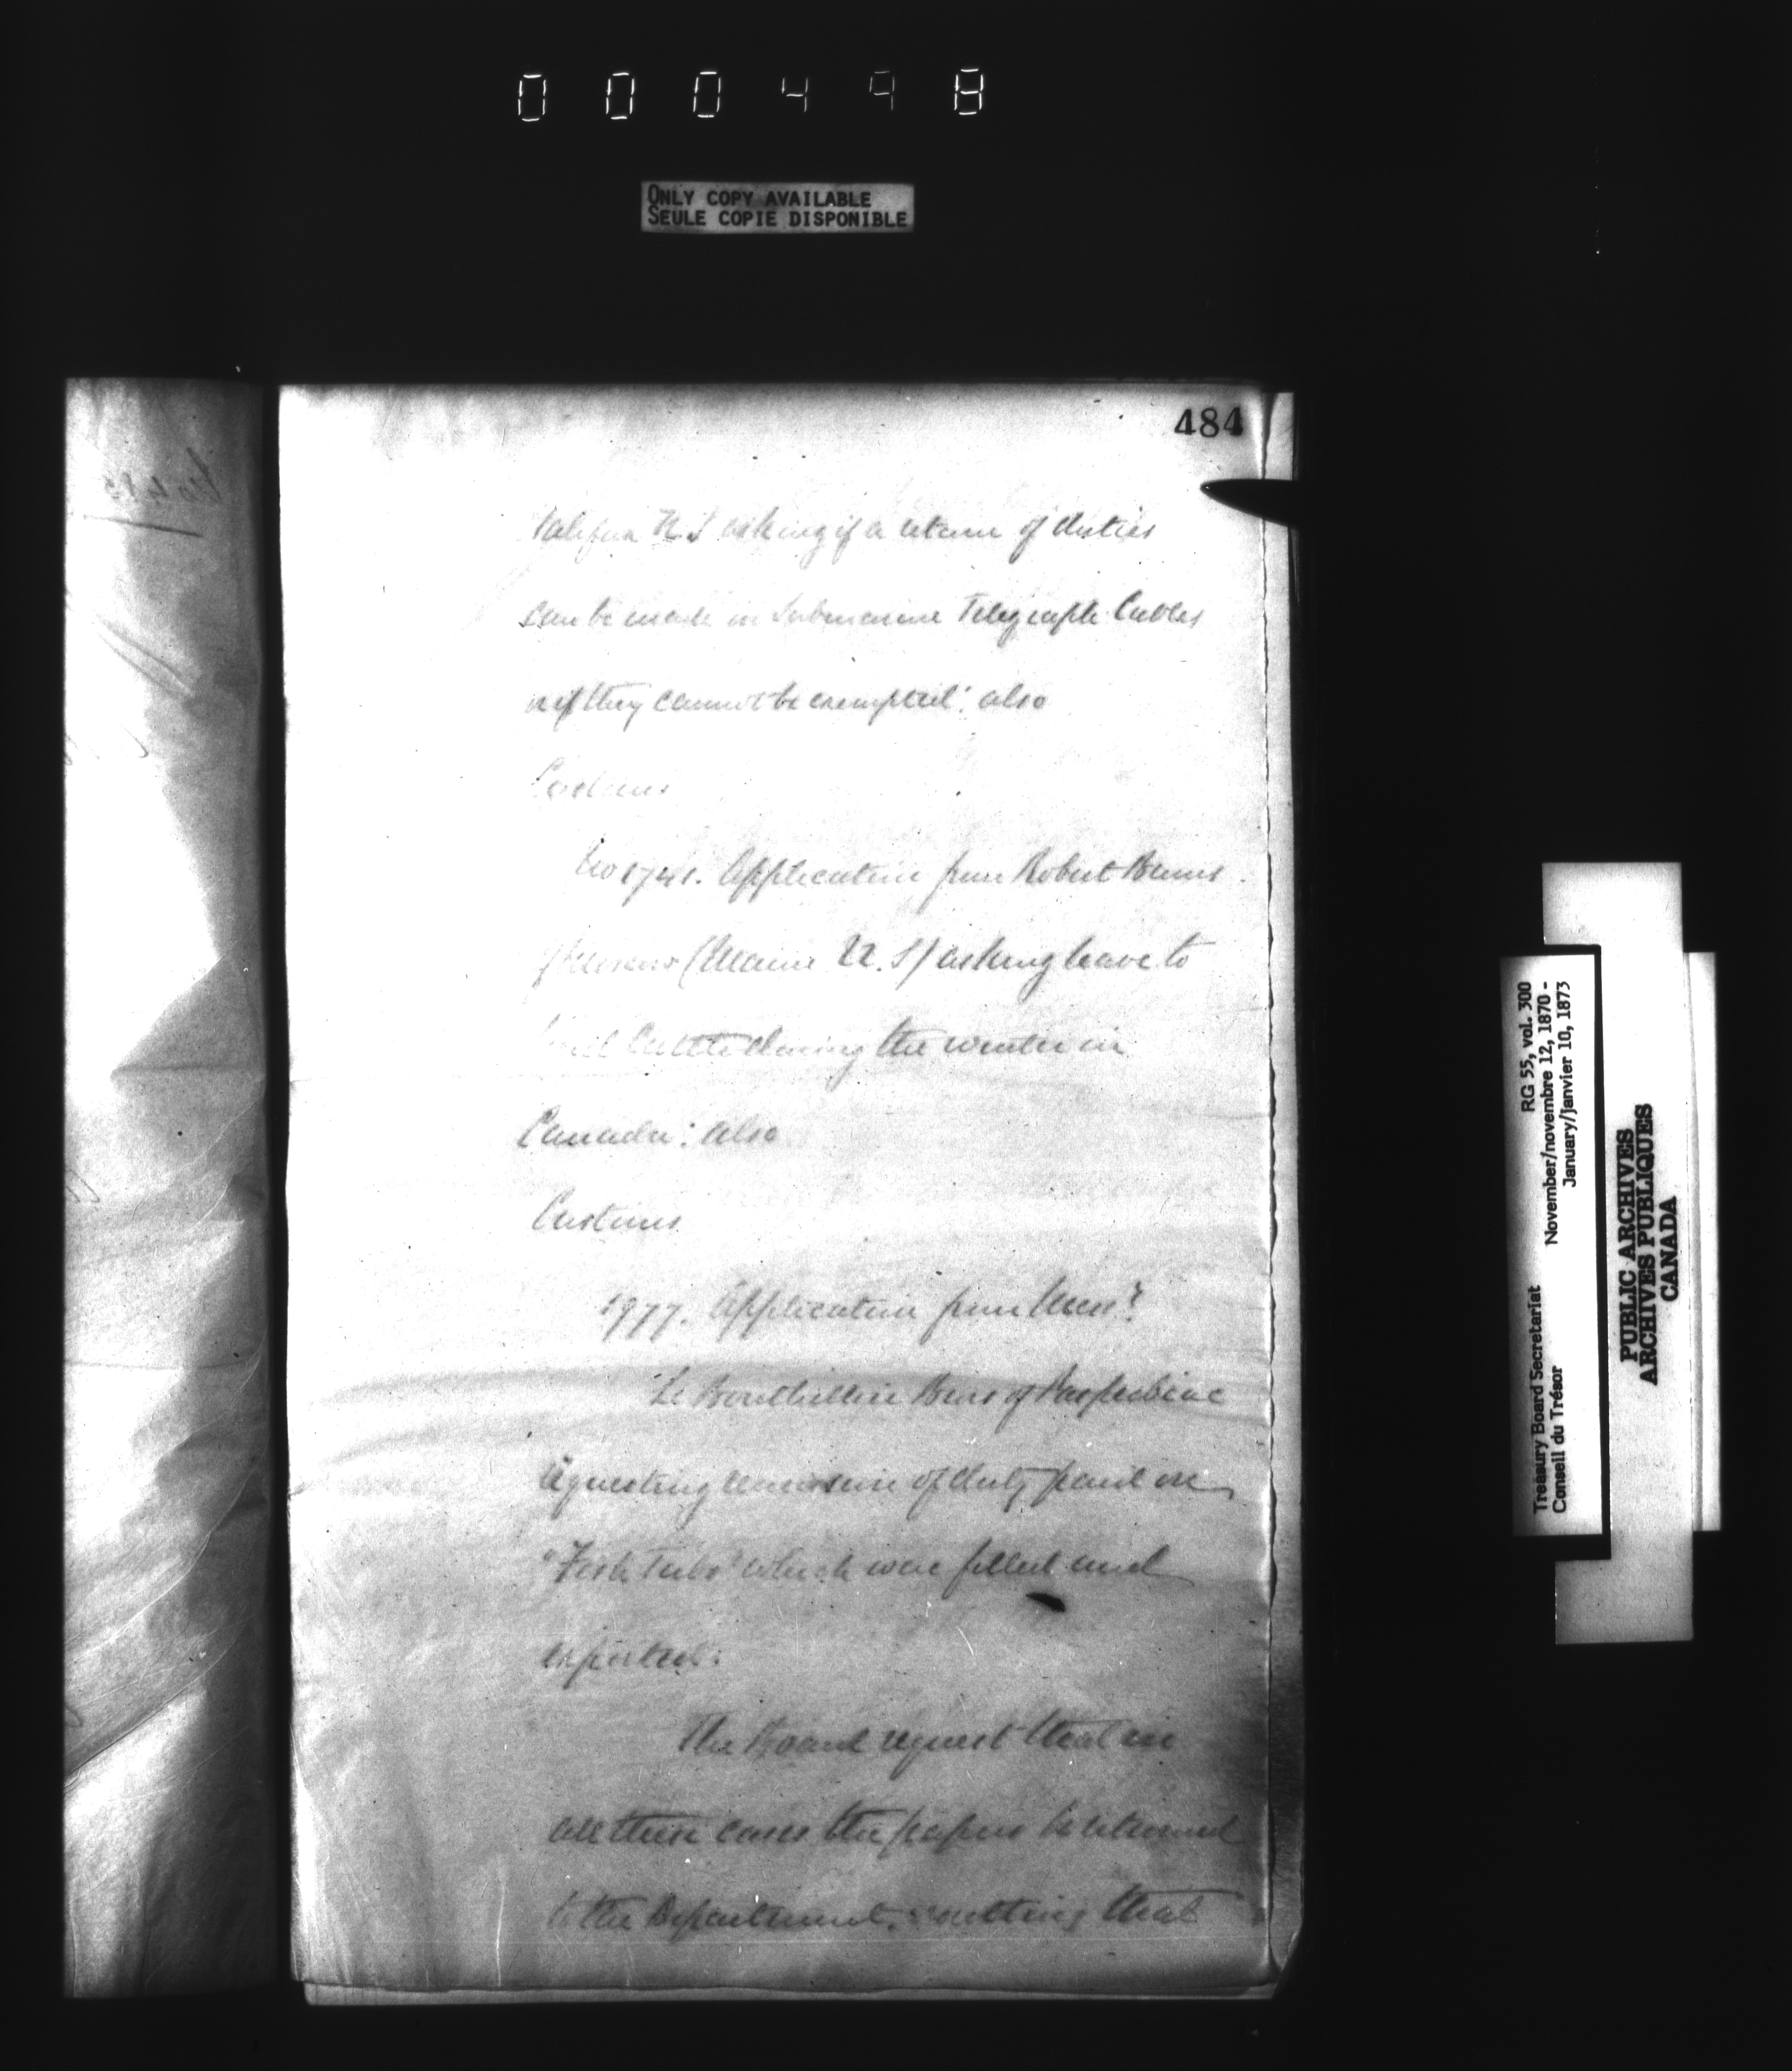 000498
ONLY COPY AVAILABLE
SEULE COPIE DISPONIBLE
484
Halifax N.S asking if a return of duties
can be made on Submarine Telegraph Cables
if they cannot be exempted: also
Customs
No 1741. Application from Robert Burns
(Maine U.S) asking leave to
Cattle during the winter in
Canada: also
Customs
1977. Application from Messrs
Le Bouthillier Bros of Paspebiac
requesting remission of duty paid on
"Fish Tubs" which were filled and
exported:
The Board request that in
all these cases the papers be returned
to the Department, that
RG 55, vol. 300
November/novembre 12, 1870 -
January/janvier 10, 1873
Treasury Board Secretariat
Conseil du Trésor
PUBLIC ARCHIVES
ARCHIVES PUBLIQUES
CANADA